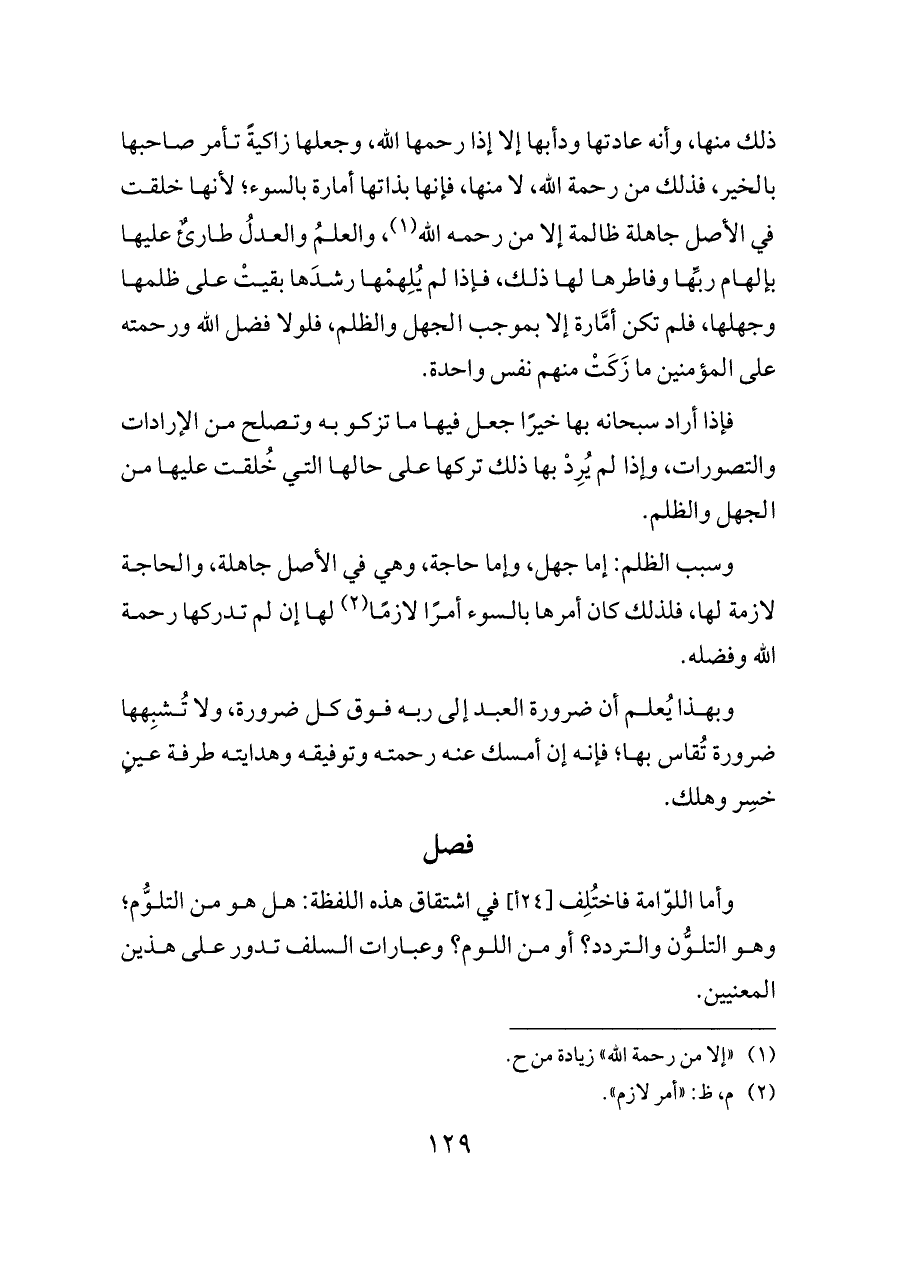 ذلك منها، وأنه عادتها ودأبها إلا إذا رحمها الله، وجعلها زاكيةً تأمر صاحبها
بالخير، فذلك من رحمة الله، لا منها، فإنها بذاتها أمارة بالسوء؛ لأنها خلقت
في الأصل جاهلة ظالمة إلا من رحمه الله(١)، والعلمُ والعدلُ طارئٌ عليها
بإلهام ربِّها وفاطرها لها ذلك، فإذا لم يُلهِمْها رشدَها بقيتْ على ظلمها
وجهلها، فلم تكن أمَّارة إلا بموجب الجهل والظلم، فلولا فضل الله ورحمته
على المؤمنين ما زَكَتْ منهم نفس واحدة.
فإذا أراد سبحانه بها خيرًا جعل فيها ما تزكو به وتصلح من الإرادات
والتصورات، وإذا لم يُرِدْ بها ذلك تركها على حالها التي خُلقت عليها من
الجهل والظلم.
وسبب الظلم: إما جهل، وإما حاجة، وهي في الأصل جاهلة، والحاجة
لازمة لها، فلذلك كان أمرها بالسوء أمرًا لازمًا(٢) لها إن لم تدركها رحمة
الله وفضله.
وبهذا يُعلم أن ضرورة العبد إلى ربه فوق كل ضرورة، ولا تُشبِهها
ضرورة تُقاس بها؛ فإنه إن أمسك عنه رحمته وتوفيقه وهدايته طرفة عينٍ
خسِر وهلك.
فصل
وأما اللوّامة فاختُلِف [٢٤أ] في اشتقاق هذه اللفظة: هل هو من التلوُّم؛
وهو التلوُّن والتردد؟ أو من اللوم؟ وعبارات السلف تدور على هذين
المعنيين.
(١) «إلا من رحمة الله» زيادة من ح.
(٢) م، ظ: «أمر لازم».
١٢٩